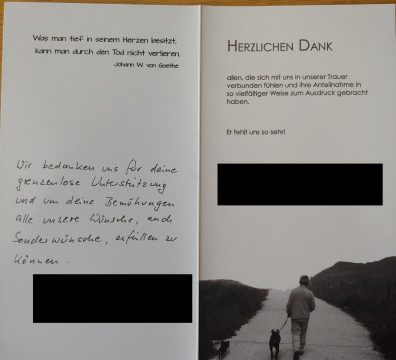 Was man tief in seinem Herzen besitzt,
kann man durch den Tod nicht verlieren.
Johann W. von Goethe
Wir bedanken uns für deine
grenzenlose Unterstützung
und um deine Bemühungen
alle unsere Wünsche, auch
Sonderwünsche, erfüllen zu
können.
HERZLICHEN DANK
allen, die sich mit uns in unserer Trauer
verbunden fühlen und ihre Anteilnahme in
so vielfältiger Weise zum Ausdruck gebracht
haben.
Er fehlt uns so sehr!